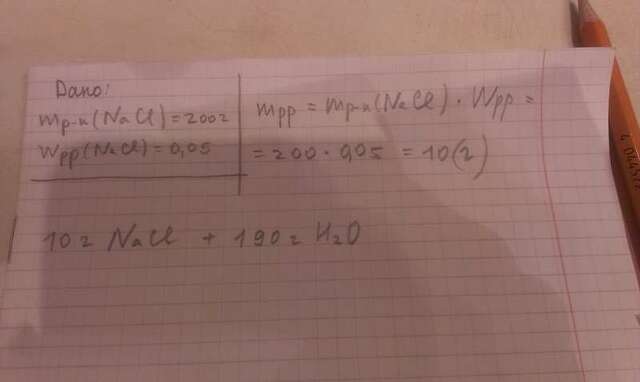 Дано:
m р-н (NaCl) = 200г
Wрр (NaCl) = 0,05
mрр = m р-н (NaCl) · Wрр =
= 200 · 0,05 = 10 (г)
10г NaCl + 190г H₂O